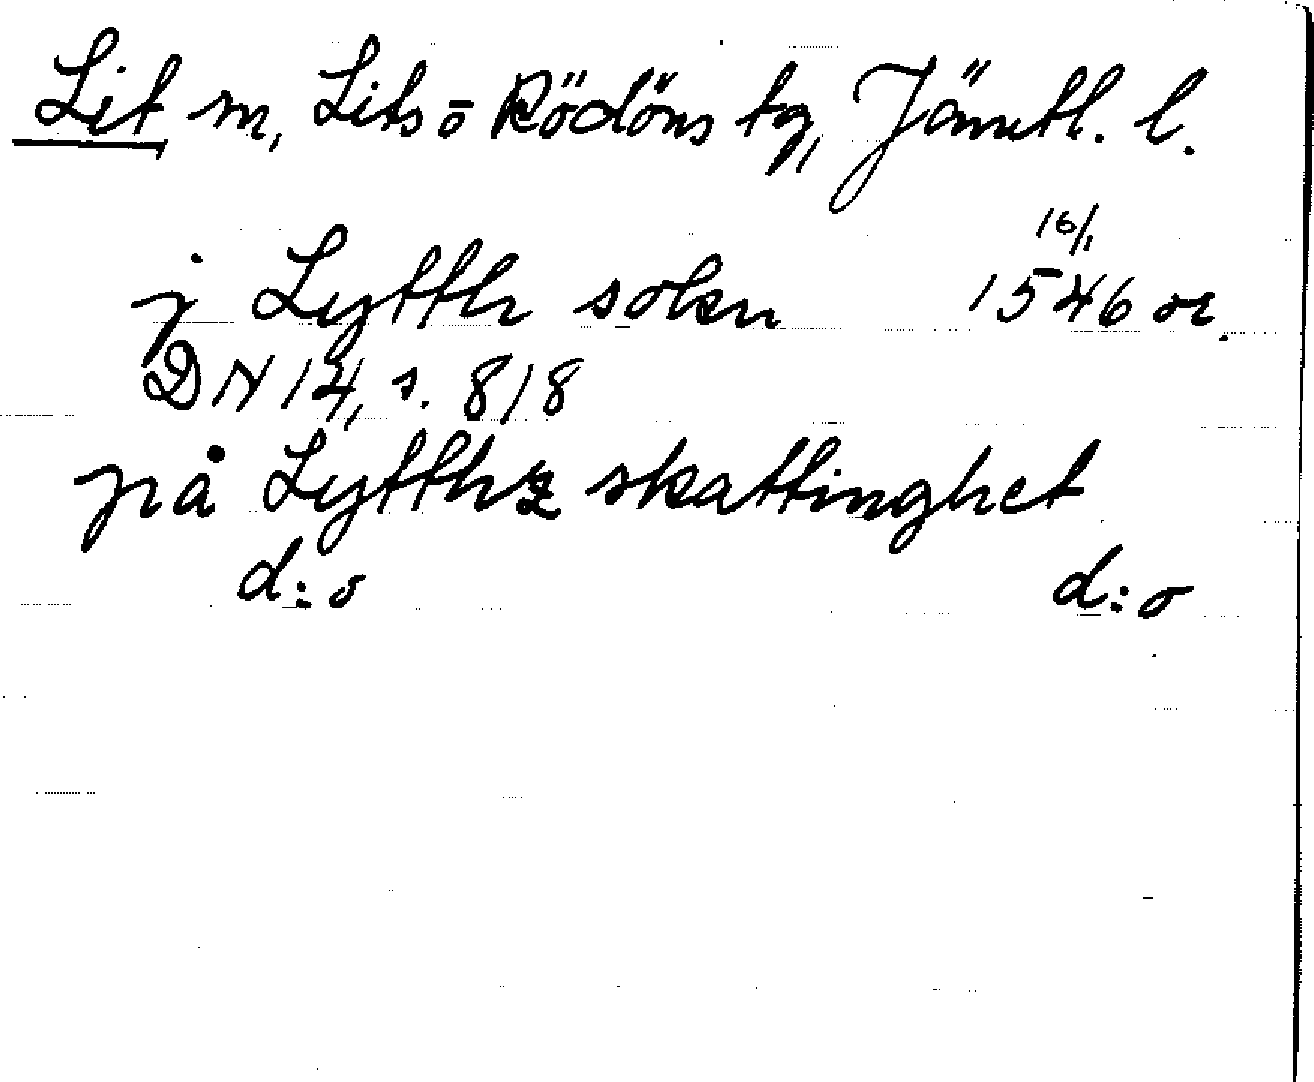 Lit sn, Lits o Rödöns tg, Jämtl. l.
j Lytth sokn 16/1 1546 or.
DN 14, s. 818
på Lytthz skattinghet
d:o d:o